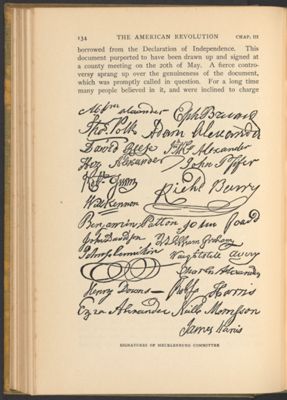 134 THE AMERICAN REVOLUTION CHAP. III
borrowed from the Declaration of Independence. This
document purported to have been drawn up and signed at
a county meeting on the 20th of May. A fierce contro-
versy sprang up over the genuineness of the document,
which was promptly called in question. For a long time
many people believed in it, and were inclined to charge
Alexander Eph Brevard
Tho. Polk Adam Alexander
David Reese Alexander
Alexander John Pffer
Richd Barry
Wm Kennon
Benjamin Patton John Foard
John Davidson William Graham
Waightstill Avery
Charles Alexander
Henry Downs Harris
Ezra Alexander Neill Morrison
James Harris
SIGNATURES OF MECKLENBURG COMMITTEE